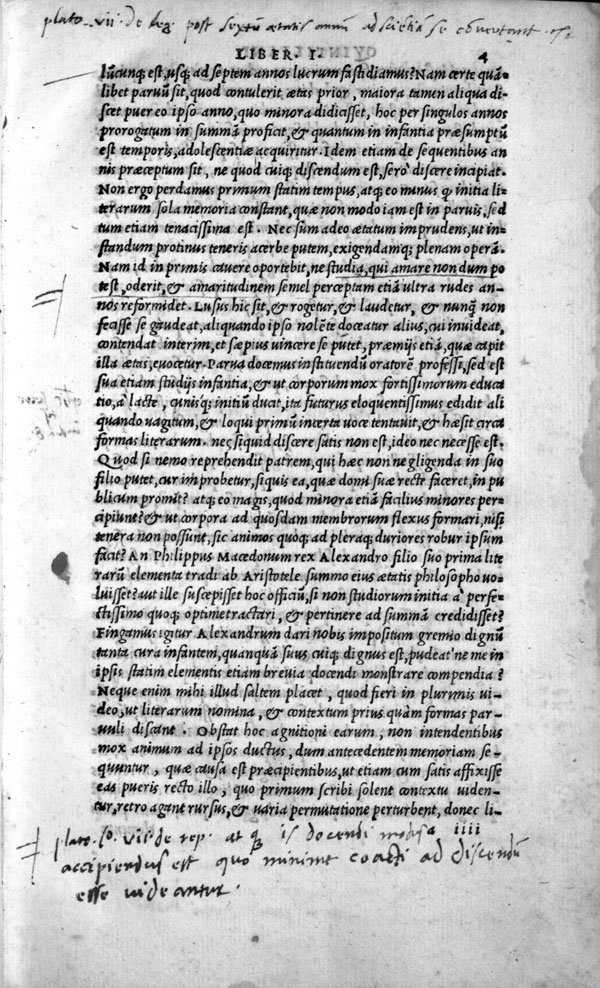 plato. vii. de leg. post sextũ ætatis annũ ad se convertant
LIBER. I. 4
lũcunq; est, usq; ad septem annos lucrum fastidiamus? Nam certe quã=
libet parvũ sit, quod contulerit ætas prior, maiora tamen aliqua di=
scet puer eo ipso anno, quo minora didicisset, hoc per singulos annos
prorogatum in summã proficit, & quantum in infantia præsumptũ
est temporis, adolescentiæ acquiritur. Idem etiam de sequentibus an
nis præceptum sit, ne quod cuiq; discendum est, sero` discere incipiat.
Non ergo perdamus primum statim tempus, atq; eo minus q initia li=
terarum sola memoria constant, quæ non modo iam est in parvis, sed
tum etiam tenacissima est. Nec sum adeo ætatum imprudens, ut in=
standum protinus teneris acerbe putem, exigendamq; plenam operã.
Nam id in primis cavere oportebit, ne studia, qui amare non dum po
test, oderit, & amaritudinem semel perceptam etiã ultra rudes an=
nos reformidet. Lusus hic sit, & rogetur, & laudetur, & nunq̃ non
fecisse se gaudeat, aliquando ipso nolẽte doceatur alius, cui invideat,
contendat interim, et sæpius vincere se putet, præmijs etiã, quæ capit
illa ætas, evocetur. Parva docemus instituendũ oratorẽ professi, sed est
sua etiam studijs infantia, & ut corporum mox fortissimorum educa
tio, a` lacte, cunisq; initiũ ducat, ita futurus eloquentissimus edidit ali
quando vagitum, & loqui primũ incerta voce tentavit, & hæsit circa
formas literarum. nec siquid discere satis non est, ideo nec necesse est.
Quod si nemo reprehendit patrem, qui hæc non negligenda in suo
filio putet, cur improbetur, siquis ea, quæ domi suæ recte faceret, in pu
blicum promit? atq; eo magis, quod minora etiã facilius minores per=
cipiunt? & ut corpora ad quosdam membrorum flexus formari, nisi
tenera non possunt, sic animos quoq; ad pleraq; duriores robur ipsum
facit? An Philippus Macedonum rex Alexandro filio suo prima lite
rarũ elementa tradi ab Aristotele summo eius ætatis philosopho vo=
luisset? aut ille suscepisset hoc officiũ, si non studiorum initia a` perfe=
ctissimo quoq; optime tractari, & pertinere ad summã credidisset?
Fingamus igitur Alexandrum dari nobis impositum gremio dignũ
tanta cura infantem, quanquã suus cuiq; dignus est, pudeat'ne me in
ipsis statim elementis etiam brevia docendi monstrare compendia?
Neque enim mihi illud saltem placet, quod fieri in plurimis vi=
deo, ut literarum nomina, & contextum prius quàm formas par=
vuli discant. Obstat hoc agnitioni earum, non intendentibus
mox animum ad ipsos ductus, dum antecedentem memoriam se=
quuntur, quæ causa est præcipientibus, ut etiam cum satis affixisse
eas pueris recto illo, quo primum scribi solent contextu viden=
tur, retro agant rursus, & varia permutatione perturbent, donec li=
plato. vii. de rep. at is docendi modus
accipiendus est quo minime coacti ad discendũ
esse videantur.